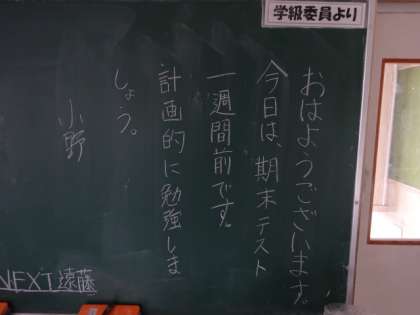 学級委員より
おはようございます。
今日は、期末テスト
一週間前です。
計画的に勉強しま
しょう。
小野
NEXT遠藤